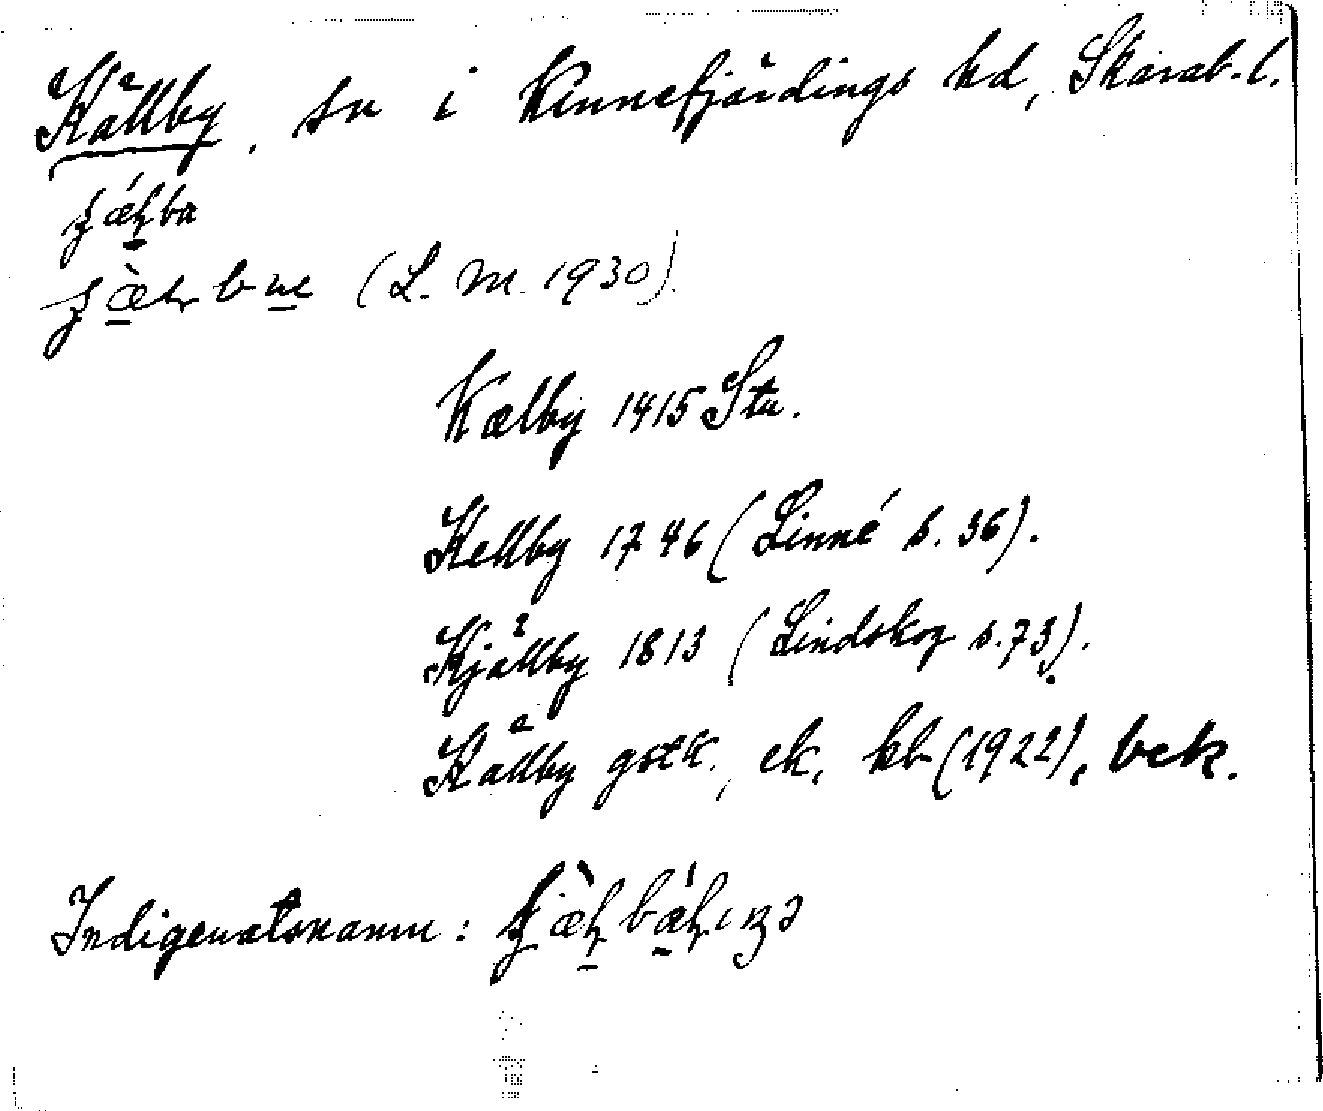 Källby, sn i Kinnefjärdings hd, Skarab. l.
(L. M. 1930).
Kælby 1415 Stu.
Kellby 1746 (Linné s. 36).
Kjällby 1813 (Lindskog s. 73).
Källby gstk., ek, kb (1922), bek.
Indigenatsnamn: